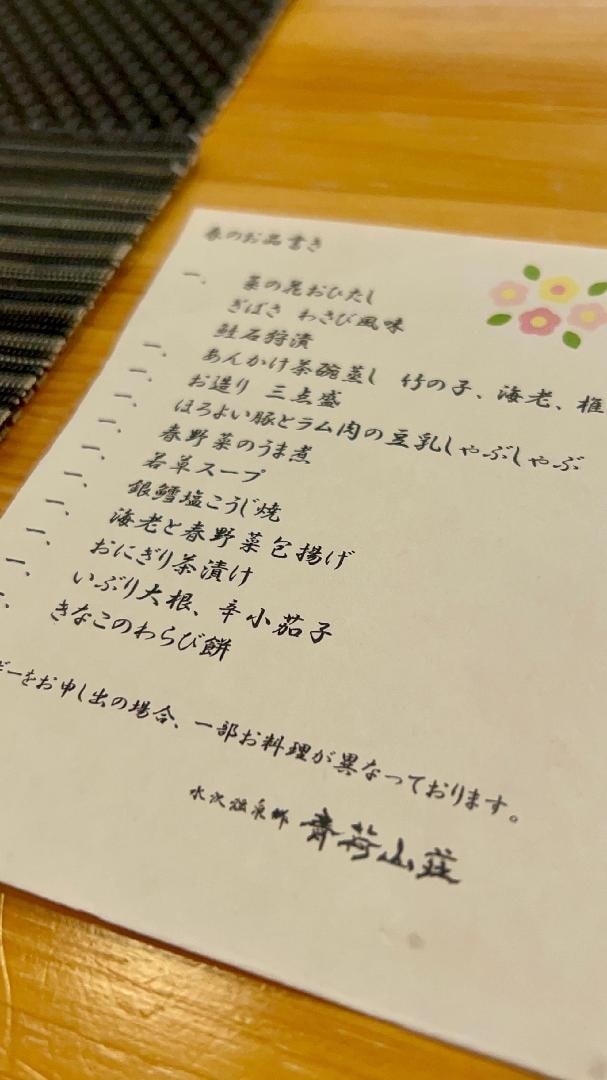 春のお品書き
一、 菜の花おひたし
ぎばさ わさび風味
鮭石狩漬
一、 あんかけ茶碗蒸し 竹の子、海老、椎
一、 お造り 三点盛
一、 ほろよい豚とラム肉の豆乳しゃぶしゃぶ
一、 春野菜のうま煮
一、 若草スープ
一、 銀鱈塩こうじ焼
一、 海老と春野菜包揚げ
一、 おにぎり茶漬け
一、 いぶり大根、辛小茄子
一、 きなこのわらび餅
ギーをお申し出の場合、一部お料理が異なっております。
水沢温泉郷 青荷山荘